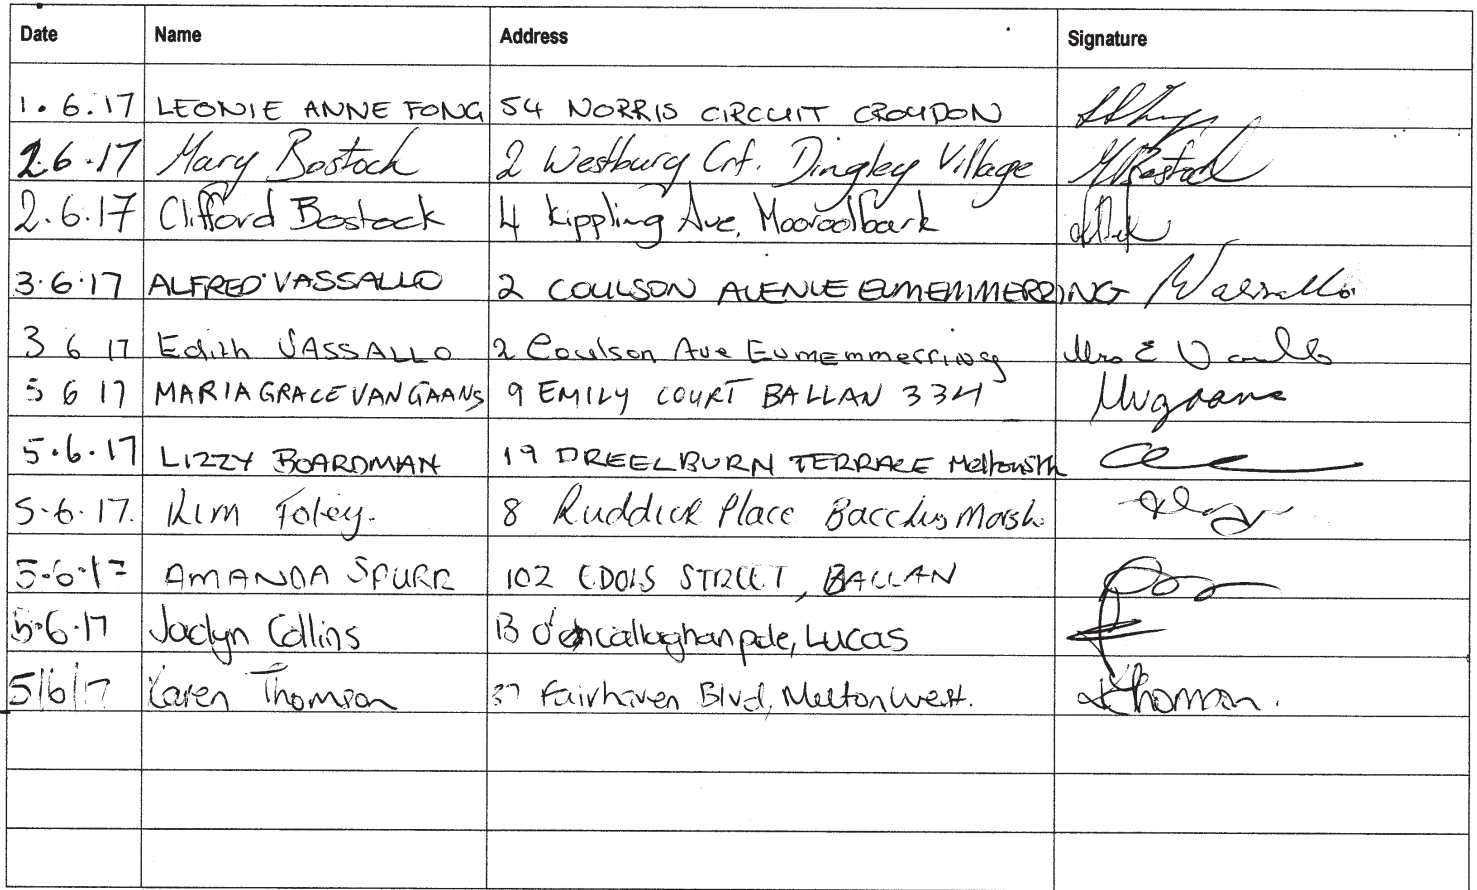 Date Name Address Signature
1.6.17 LEONIE ANNE FONG 54 NORRIS CIRCUIT CROYDON
2.6.17 Mary Bostock 2 Westbury Crt. Dingley Village MBostock
2.6.17 Clifford Bostock 4 Kippling Ave, Mooroolbark
3.6.17 ALFRED VASSALLO 2 COULSON AVENUE EUMEMMERRING Vassallo
3 6 17 Edith VASSALLO 2 Coulson Ave Eumemmerring Mrs E Vassallo
5 6 17 MARIA GRACE VAN GAANS 9 EMILY COURT BALLAN 334 Mvgaans
5.6.17 LIZZY BOARDMAN 19 DREELBURN TERRACE Melton Sth
5.6.17. Kim Foley. 8 Ruddick Place Bacchus Marsh.
5.6.17 AMANDA SPURR 102 EDOLS STREET, BALLAN
5.6.17 Jaclyn Collins 13 Lucas
5/6/17 Karen Thomson 37 Fairhaven Blvd, Melton West. KThomson.